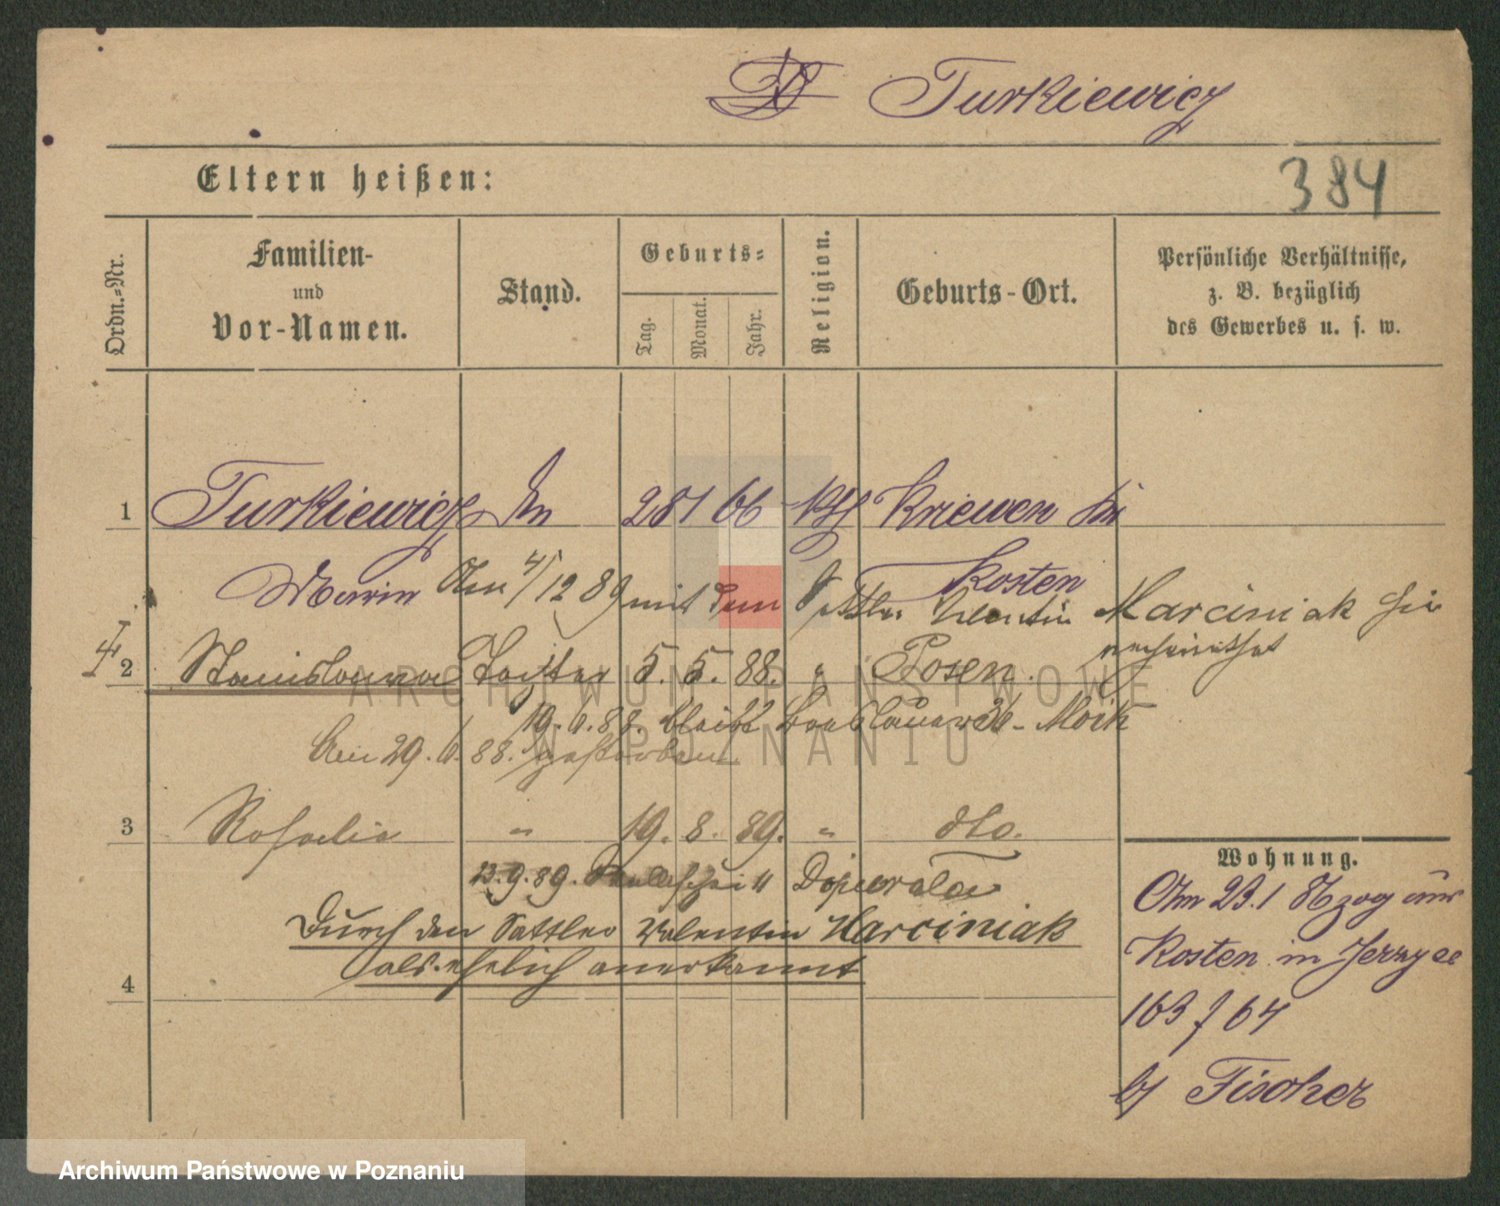 Turkiewicz
384
Eltern heißen:
Ordn.-Nr.
Familien-
und
Vor-Namen.
Stand.
Geburts-
Tag.
Monat.
Jahr.
Religion.
Geburts-Ort.
Persönliche Verhältnisse,
z. B. bezüglich
des Gewerbes u. s. w.
1 Turkiewicz 28 1 66 kth Kriewen Kr.
Kosten
Am 4/12 89 mit dem Sattler Valentin Marciniak hier
verheirathet
2 Stanislawa Tochter 5. 5. 88. " Posen.
19. 6. 88. bleibt Breslauerstr.
Am 29. 6. 88. gestorben
3 Rosalie " 19. 8. 89. " dto.
13. 9. 89.
Durch den Sattler Valentin Marciniak
als ehelich anerkannt
4
Wohnung.
Am 23.1 88 zog aus
Kosten in Jerzyce
163 f 64
b/ Fischer
ARCHIWUM PAŃSTWOWE
W POZNANIU
Archiwum Państwowe w Poznaniu